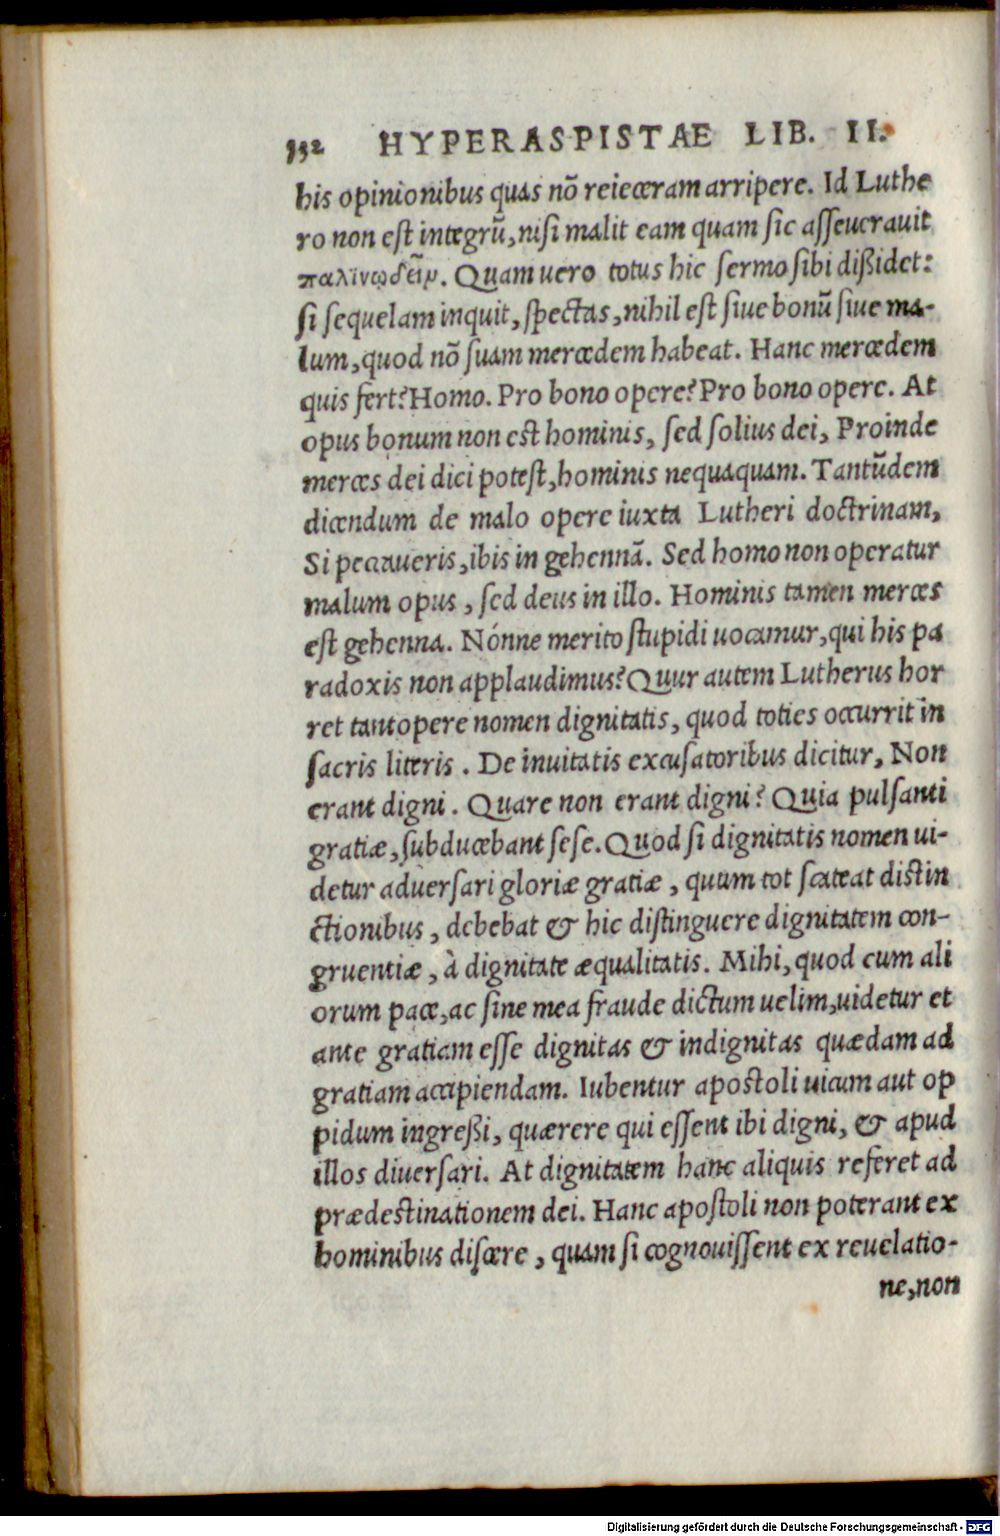 332 HYPERASPISTAE LIB. II.
his opinionibus quas nõ reieceram arripere. Id Luthe
ro non est integrũ, nisi malit eam quam sic asseuerauit
παλινῳδεῖν. Quam uero totus hic sermo sibi dißidet:
si sequelam inquit, spectas, nihil est siue bonũ siue ma-
lum, quod nõ suam mercedem habeat. Hanc mercedem
quis fert? Homo. Pro bono opere? Pro bono opere. At
opus bonum non est hominis, sed solius dei, Proinde
merces dei dici potest, hominis nequaquam. Tantũdem
dicendum de malo opere iuxta Lutheri doctrinam,
Si peccaueris, ibis in gehennã. Sed homo non operatur
malum opus, sed deus in illo. Hominis tamen merces
est gehenna. Nónne merito stupidi uocamur, qui his pa
radoxis non applaudimus? Quur autem Lutherus hor
ret tantopere nomen dignitatis, quod toties occurrit in
sacris literis. De inuitatis excusatoribus dicitur, Non
erant digni. Quare non erant digni? Quia pulsanti
gratiæ, subducebant sese. Quod si dignitatis nomen ui-
detur aduersari gloriæ gratiæ, quum tot scateat distin
ctionibus, debebat & hic distinguere dignitatem con-
gruentiæ, à dignitate æqualitatis. Mihi, quod cum ali
orum pace, ac sine mea fraude dictum uelim, uidetur et
ante gratiam esse dignitas & indignitas quædam ad
gratiam accipiendam. Iubentur apostoli uicum aut op
pidum ingreßi, quærere qui essent ibi digni, & apud
illos diuersari. At dignitatem hanc aliquis referet ad
prædestinationem dei. Hanc apostoli non poterant ex
hominibus discere, quam si cognouissent ex reuelatio-
ne, non
Digitalisierung gefördert durch die Deutsche Forschungsgemeinschaft - DFG